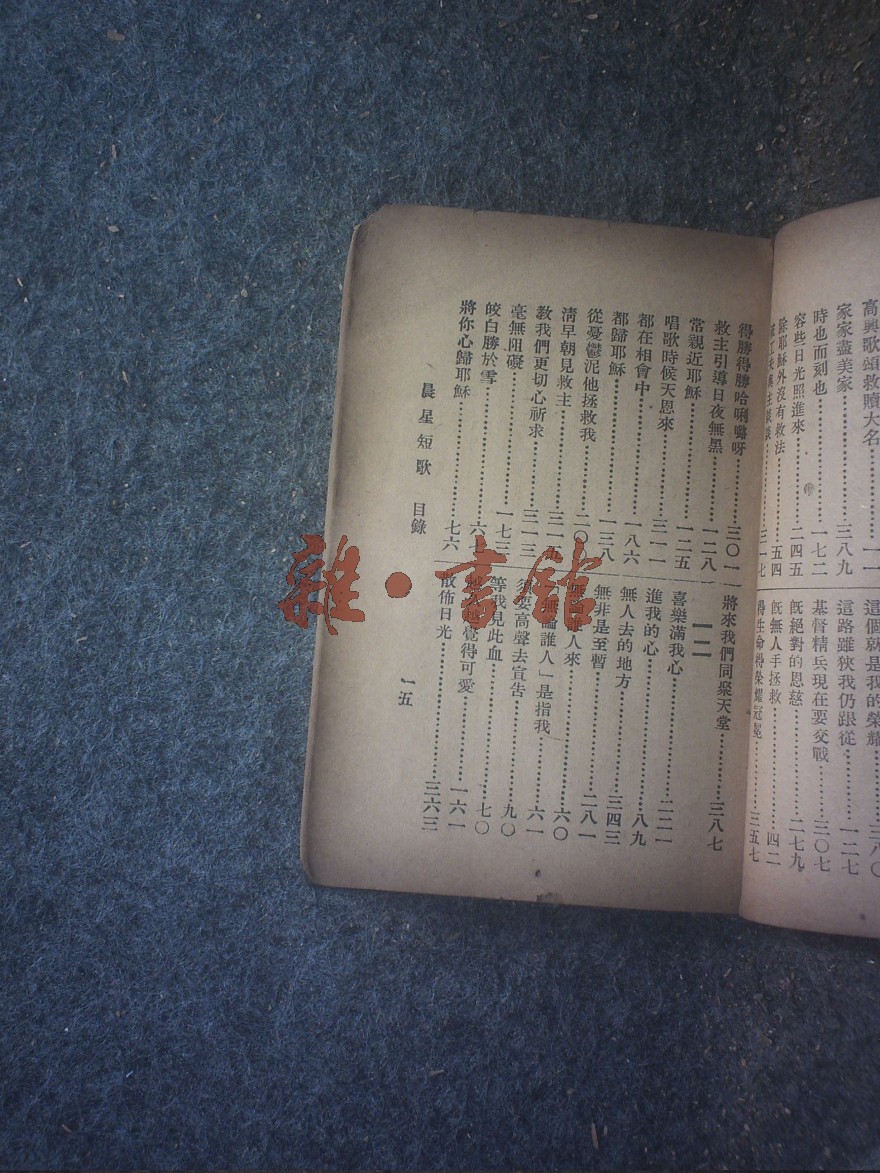 高興歌頌救贖大名……一一
家家盡美家……三八九
時也而刻也……一七二
容些日光照進來……二四五
除耶穌外沒有救法……五四
三一七
這個就是我的榮耀……三八〇
這路雖狹我仍跟從……一二七
基督精兵現在要交戰……三〇七
既絕對的恩慈……二七九
既無人手拯救……四二
得生命得榮耀冠冕……三五七
得勝得勝哈唎嚕呀……三〇一
救主引導日夜無黑……一二八
常親近耶穌……一二五
唱歌時候天恩來……三一一
都在相會中……一八六
都歸耶穌……一三八
從憂鬱泥他拯救我……二〇
清早朝見救主……三一五
教我們更切心祈求……三一三
毫無阻礙……一七三
皎白勝於雪……六七
將你心歸耶穌……七六
將來我們同聚天堂……三八七
一二
喜樂滿我心……二二一
進我的心……八九
無人去的地方……三四三
無非是至暫……二八一
人來……六〇
無論誰人」是指我……六一
須要高聲去宣告……九〇
等我見此血……七〇
越覺得可愛……一六一
散佈日光……三六三
晨星短歌 目錄
一五
雜·書館